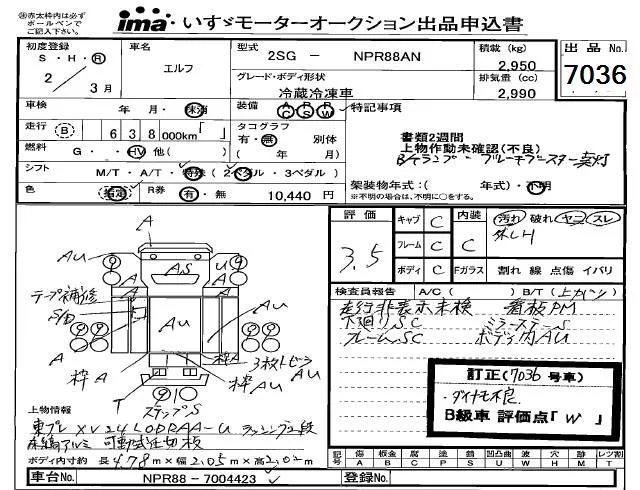 ㊟赤太枠内は必ず
ボールペンで
ご記入下さい。
ima いすゞモーターオークション出品申込書
初度登録 車名 型式 2SG － NPR88AN 積載(kg) 2,950 出品No.
S・H・Ⓡ エルフ グレード・ボディ形状 排気量(cc) 7036
2／3月 冷蔵冷凍車 2,990
車検 年 月・抹消 装備 AC PS RW 特記事項
走行 (B) 638 000km「 」 タコグラフ 書類2週間
有・無 別体 上物作動未確認(不良)
燃料 G・ HV 他( ) ( 年 月)
シフト M/T・A/T・特殊(2ペダル・3ペダル) 架装物年式:( 年式)・不明
※不明の場合は、不明に○をする。
色 指定 R券 有・無 10,440 円
評価 3.5 キャブ C 内装 C 汚れ 破れ ヤコ スレ
フレーム C
ボディ C Fガラス 割れ 線 点傷 イバリ
検査員報告 A/C( ) B/T(
走行非表示未検 看板PM
下廻りSC ミラーステーS
フレームSC ボディ内AU
訂正(7036号車)
・ダイナモ不良
B級車 評価点「W」
A
AU AS U
テープ補修 A A
S/D AU AU
A
枠A 枠A 3枚トビラ
枠AU AU
T ステップS
上物情報
東プレ XV24LODPAA-U ラッシング2段
床縞アルミ 可動式仕切板
ボディ内寸約 長4.78m×幅2.05m×高2.02m
記号 傷 板金 腐 塗 錆 凹凸曲 波 穴 跡 レンズ割
A B C P S U W H M T
車台No. NPR88-7004423 登録No.